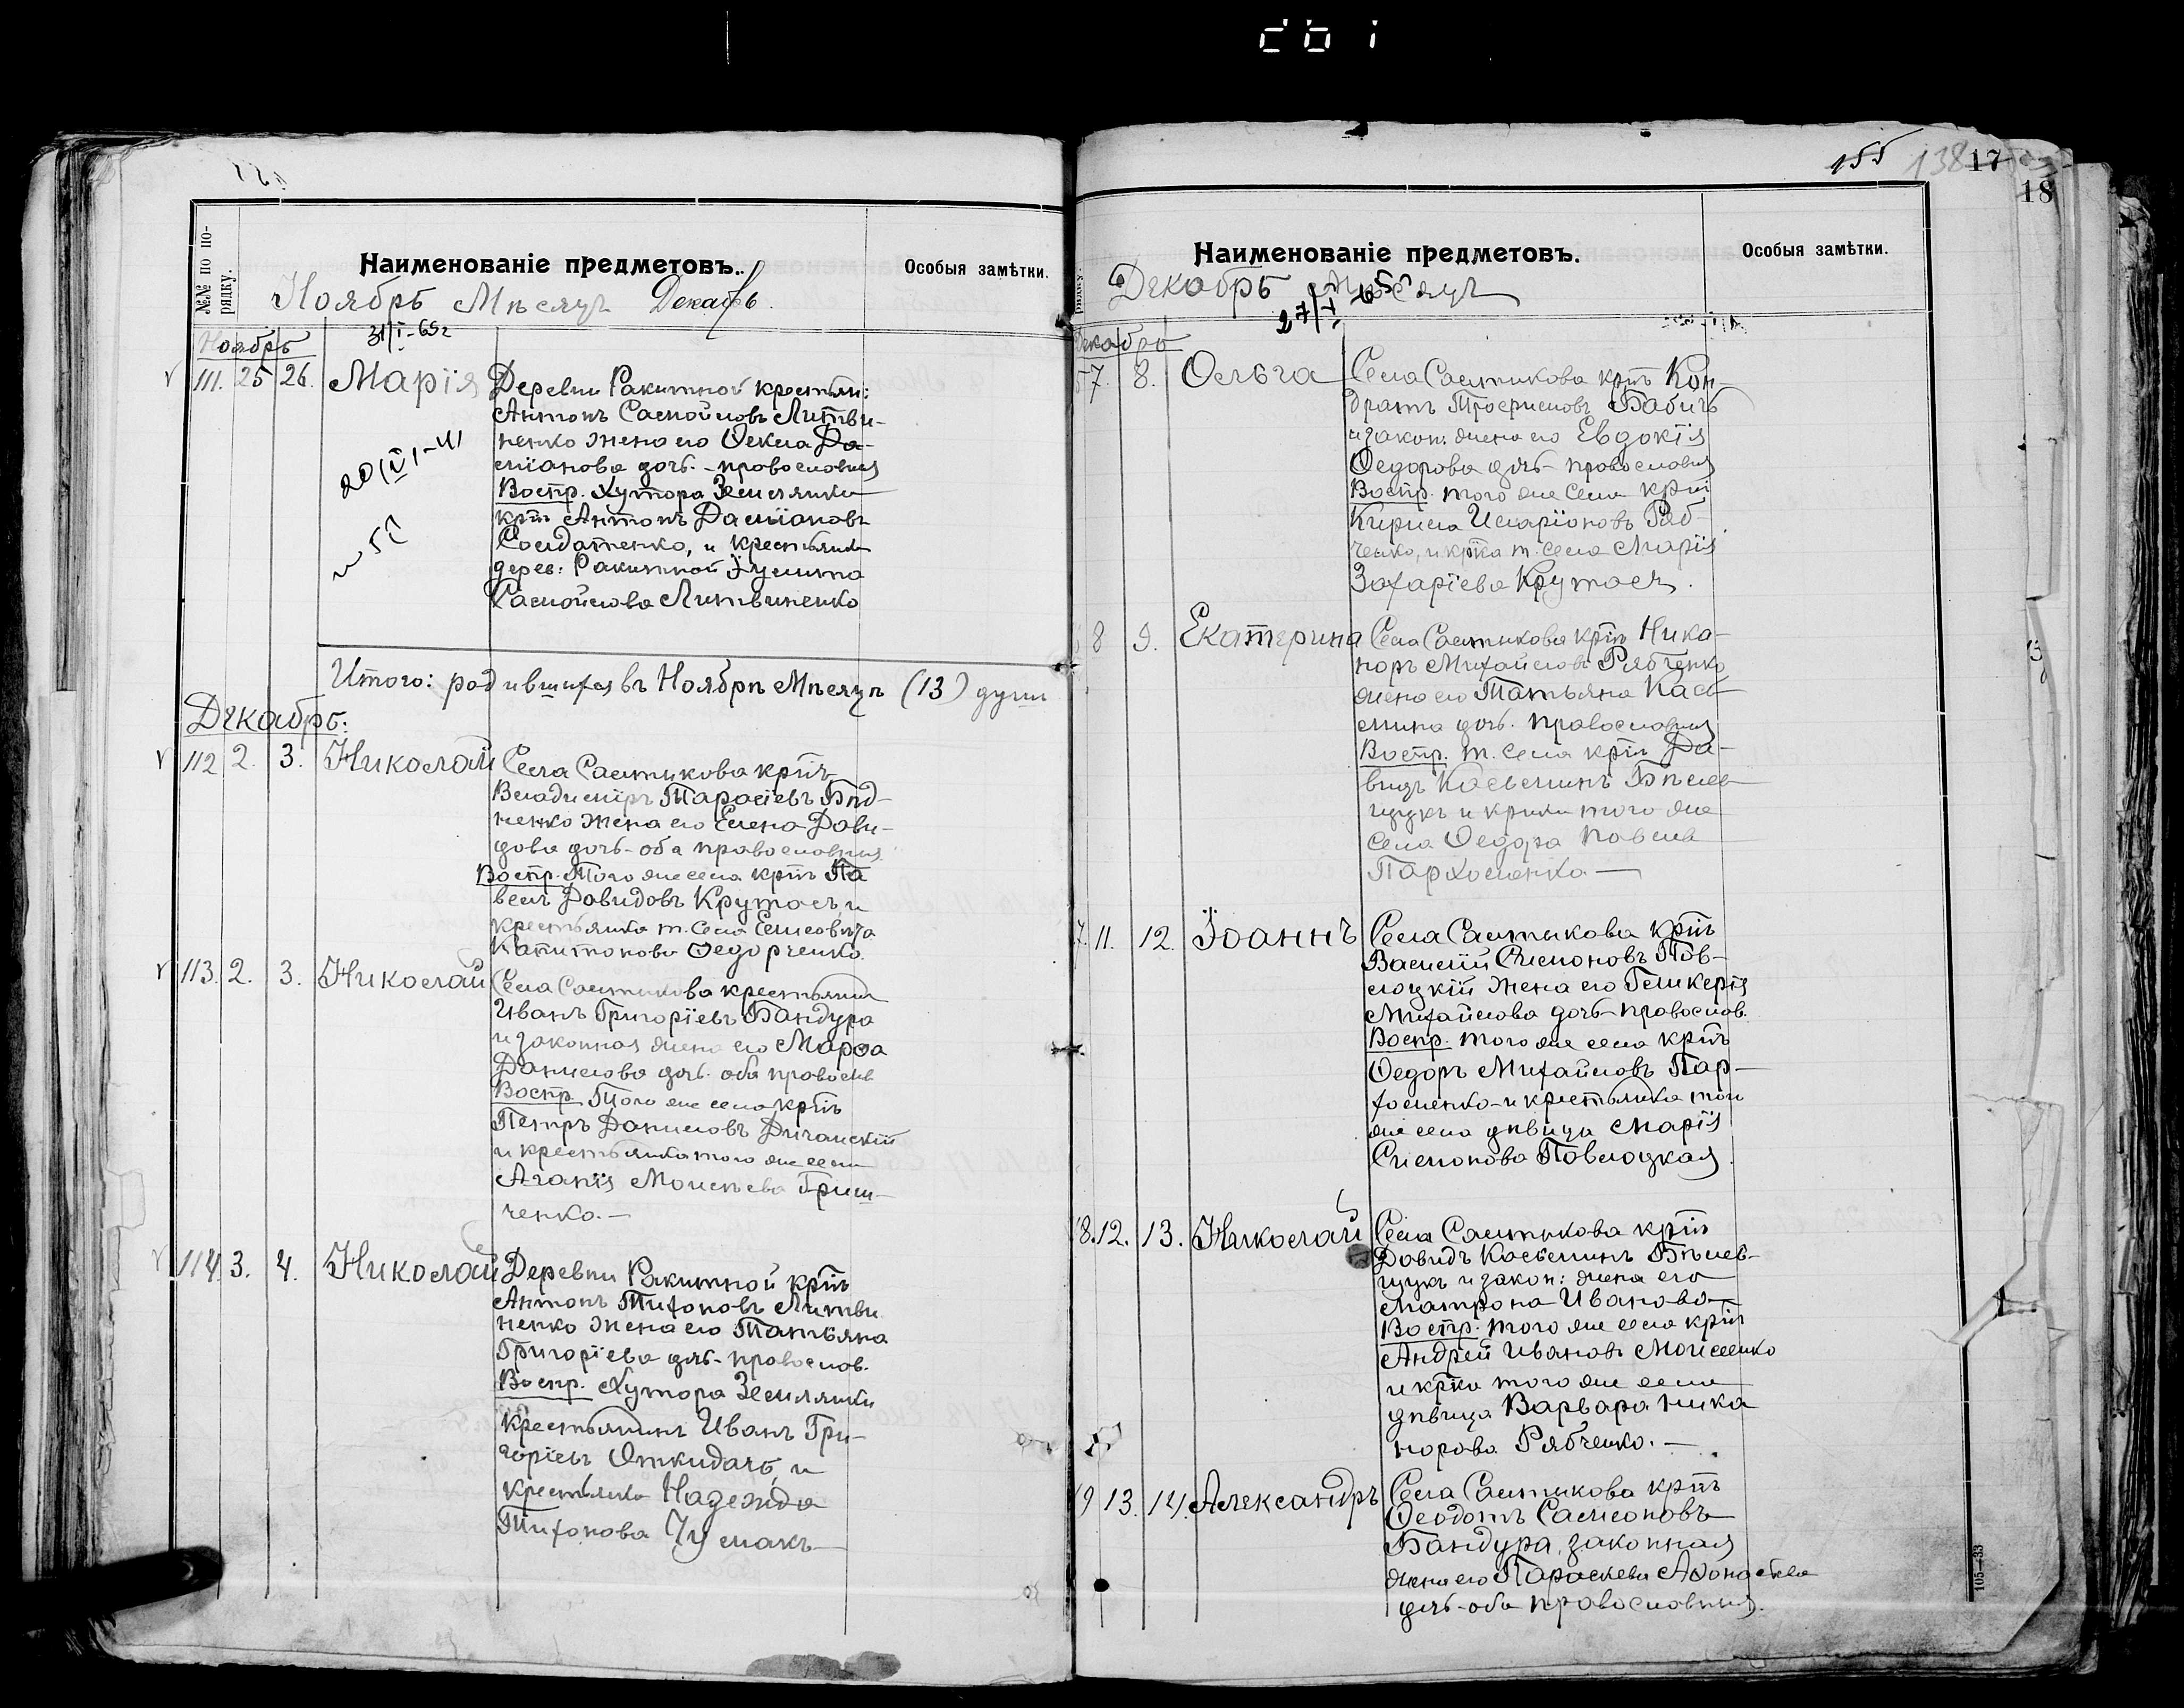 155 138 17
18
№№ по по-
рядку.
Наименованіе предметовъ.
Особыя замѣтки.
Ноябрь Мѣсяцъ Декабрь
31/I-65г
Ноябрь
111. 25 26. Марія
Деревни Ракитной крестьян:
Антонъ Самойловъ Литви-
ненко жена его Ѳекла Да-
міанова дочь - православныя
Воспр. Хутора Землянки
кр̅нъ Антонъ Даміановъ
Солдатенко, и крестьянка
дерев: Ракитной Іулита
Самойлова Литвиненко
Итого: родившихся въ Ноябрѣ Мѣсяцѣ (13) душъ
Декабрь:
112 2. 3. Николай
Села Салтыкова кр̅нъ
Владиміръ Тарасіевъ Бѣд-
ненко жена его Елена Дави-
дова дочь - оба православныя
Воспр. Того же села кр̅нъ Па
велъ Давидовъ Крутась, и
крестьянка т. села Елисавета
Капитонова Ѳедорченко.
113. 2. 3. Николай
Села Салтыкова крестьянинъ
Иванъ Григоріевъ Бандура
и законная жена его Марѳа
Данилова дочь. оба правосл
Воспр. Того же села кр̅нъ
Петръ Даниловъ
и крестьянка того же села
Агапія Моисѣева Гриш-
ченко. —
114 3. 4. Николай
Деревни Ракитной кр̅нъ
Антонъ Тихоновъ Литви
ненко жена его Татьяна
Григоріева дочь - православ.
Воспр. Хутора Землянки
крестьянинъ Иванъ Гри-
горіевъ Откидачъ, и
крестьянка Надежда
Тихонова Чумакъ —
Наименованіе предметовъ.
Особыя замѣтки.
Декабрь Мѣсяцъ
27/I-65
Декабрь
7. 8. Ольга
Села Салтыкова кр̅нъ Кон-
дратъ Бабичъ
и закон: жена его Евдокія
Ѳедорова дочь - православныя
Воспр. того же села кр̅нъ
Кирилъ Иларіоновъ Ряб-
ченко, и кр̅нка т. села Марія
Захаріева Крутась.
8 9. Екатерина
Села Салтыкова кр̅нъ Ника-
норъ Михайловъ Рябченко
жена его Татьяна Кась-
мина дочь. православныя
Воспр. т. села кр̅нъ Да-
видъ Касьминъ Бѣлев-
цукъ и кр̅нка того же
села Ѳедора Павлова
Пархоменко —
11. 12. Іоаннъ
Села Салтыкова кр̅нъ
Василій Симоновъ Пав-
лоцкій жена его Гликерія
Михайлова дочь - православ.
Воспр. того же села кр̅нъ
Ѳедоръ Михайловъ Пар-
хоменко - и крестьянка того
же села дѣвица Марія
Симонова Павлоцкая.
12. 13. Николай
Села Салтыкова кр̅нъ
Давидъ Касьминъ Бѣлев-
цукъ и закон: жена его
Матрона Иванова
Воспр. того же села кр̅нъ
Андрей Ивановъ Моисеенко
и кр̅нка того же села
дѣвица Варвара Ника
норова Рябченко. —
13. 14. Александръ
Села Салтыкова кр̅нъ
Ѳеодотъ Самсоновъ
Бандура, законная
жена его Параскева Аѳонасьева
дочь - оба православныя.
105—33